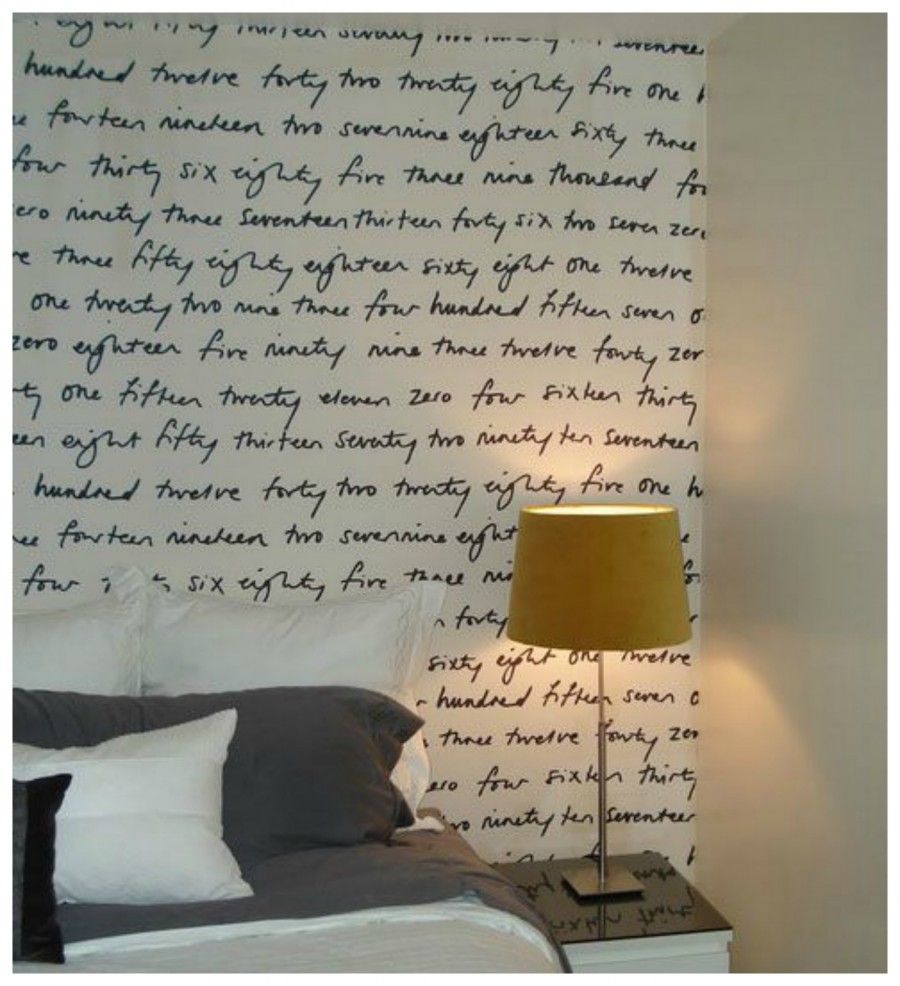 eight fifty thirteen seventy two seventee
hundred twelve forty two twenty eighty five one h
ee fourteen nineteen two sevennine eighteen sixty three
four thirty six eighty five three nine thousand fou
ero ninety three seventeen thirteen forty six two seven zero
re three fifty eighty eighteen sixty eight one twelve
one twenty two nine three four hundred fifteen seven o
zero eighteen five ninety nine three twelve fourty zer
ty one fifteen twenty eleven zero four sixteen thirty
een eight fifty thirteen seventy two ninety ten seventeen
hundred twelve forty two twenty eighty five one h
ee fourteen nineteen two sevennine eight e
four six eighty five three ni fo
n forty
sixty eight one twelve
hundred fifteen seven o
three twelve fourty zer
ero four sixteen thirty
wo ninety ten seventeen